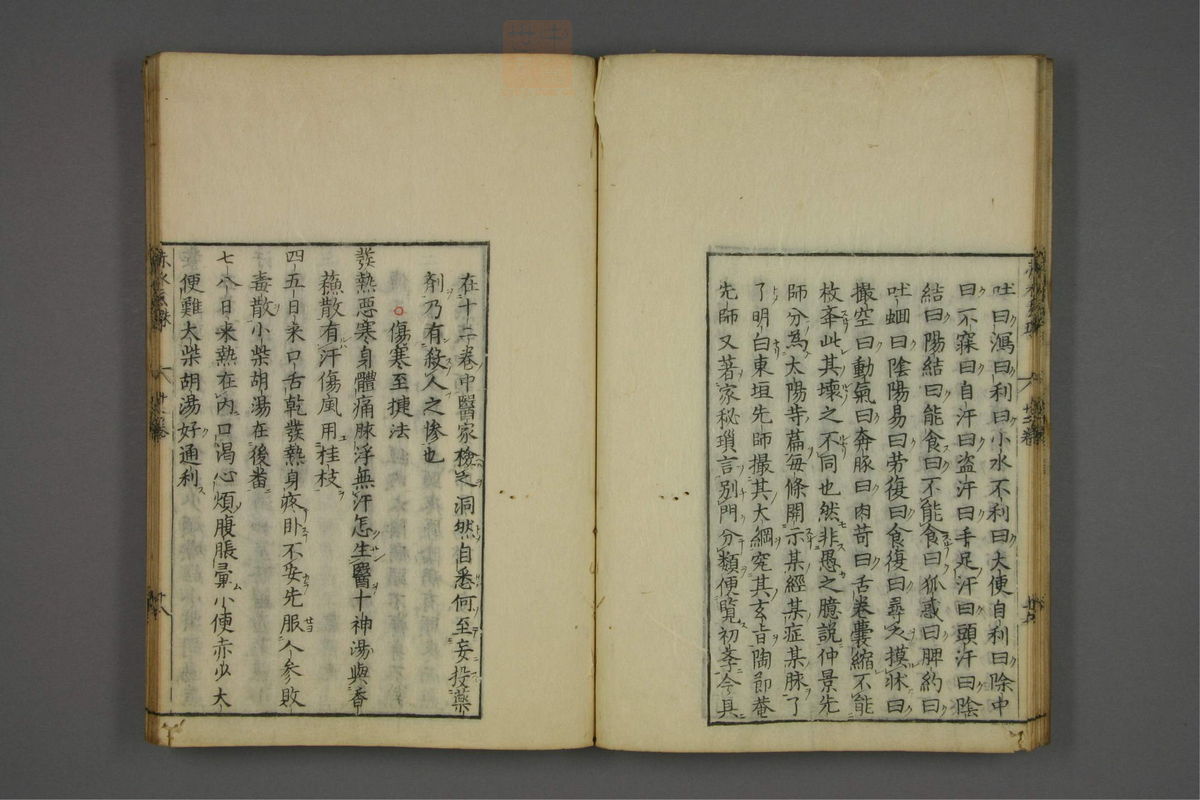 吐曰瀉曰利曰小水不利曰大便自利曰除中
曰不寐曰自汗曰盗汗曰手足汗曰頭汗曰陰
結曰陽結曰能食曰不能食曰狐惑曰脾約曰
吐蛔曰陰陽易曰労復曰食復曰尋衣摸牀曰
撮空曰動氣曰奔豚曰肉苛曰舌卷囊縮不能
枚挙此其壊之不同也然非愚之臆説仲景先
師分為太陽等篇毎條開示某經某症某脉了
了明白東垣先師撮其大綱究其玄旨陶節菴
先師又著家秘瑣言別門分類便覧初學今具
在十二巻中醫家檢之洞然自悉何至妄投藥
劑乃有殺人之惨也
傷寒至捷法
發熱悪寒身體痛脉浮無汗怎生醫十神湯與香
蘓散有汗傷風用桂枝
四五日来口舌乾發熱身疼卧不安先服人参敗
毒散小柴胡湯在後番
七八日来熱在内口渇心煩腹脹彙小便赤少大
便難大柴胡湯好通利